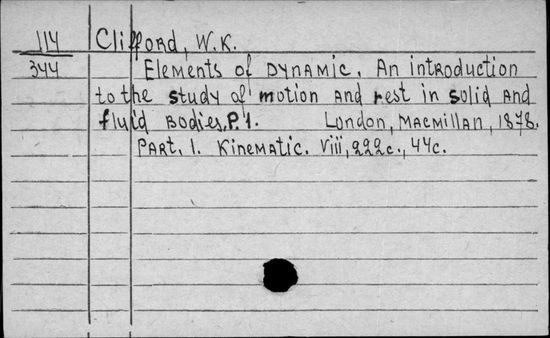 114 Clifford, W.K.
344 Elements of Dynamic. An introduction
to the study of motion and rest in solid and
fluid bodies. P. 1. London, Macmillan, 1878.
Part. 1. Kinematic. Viii, 222c., 44c.